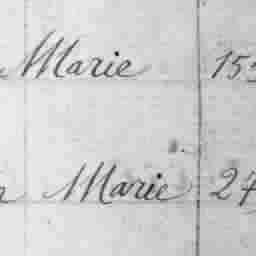 Marie 155
Marie 27